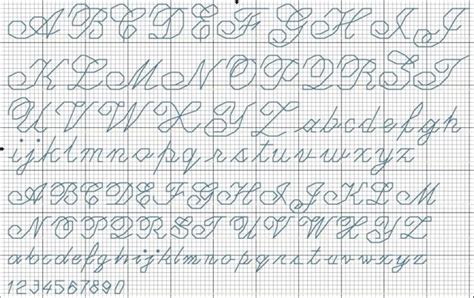 A B C D E F G H I J
K L M N O P Q R S T
U V W X Y Z a b c d e f g h
i j k l m n o p q r s t u v w x y z
A B C D E F G H I J K L M
N O P Q R S T U V W X Y Z
a b c d e f g h i j k l m n o p q r s t u v w x y z
1 2 3 4 5 6 7 8 9 0